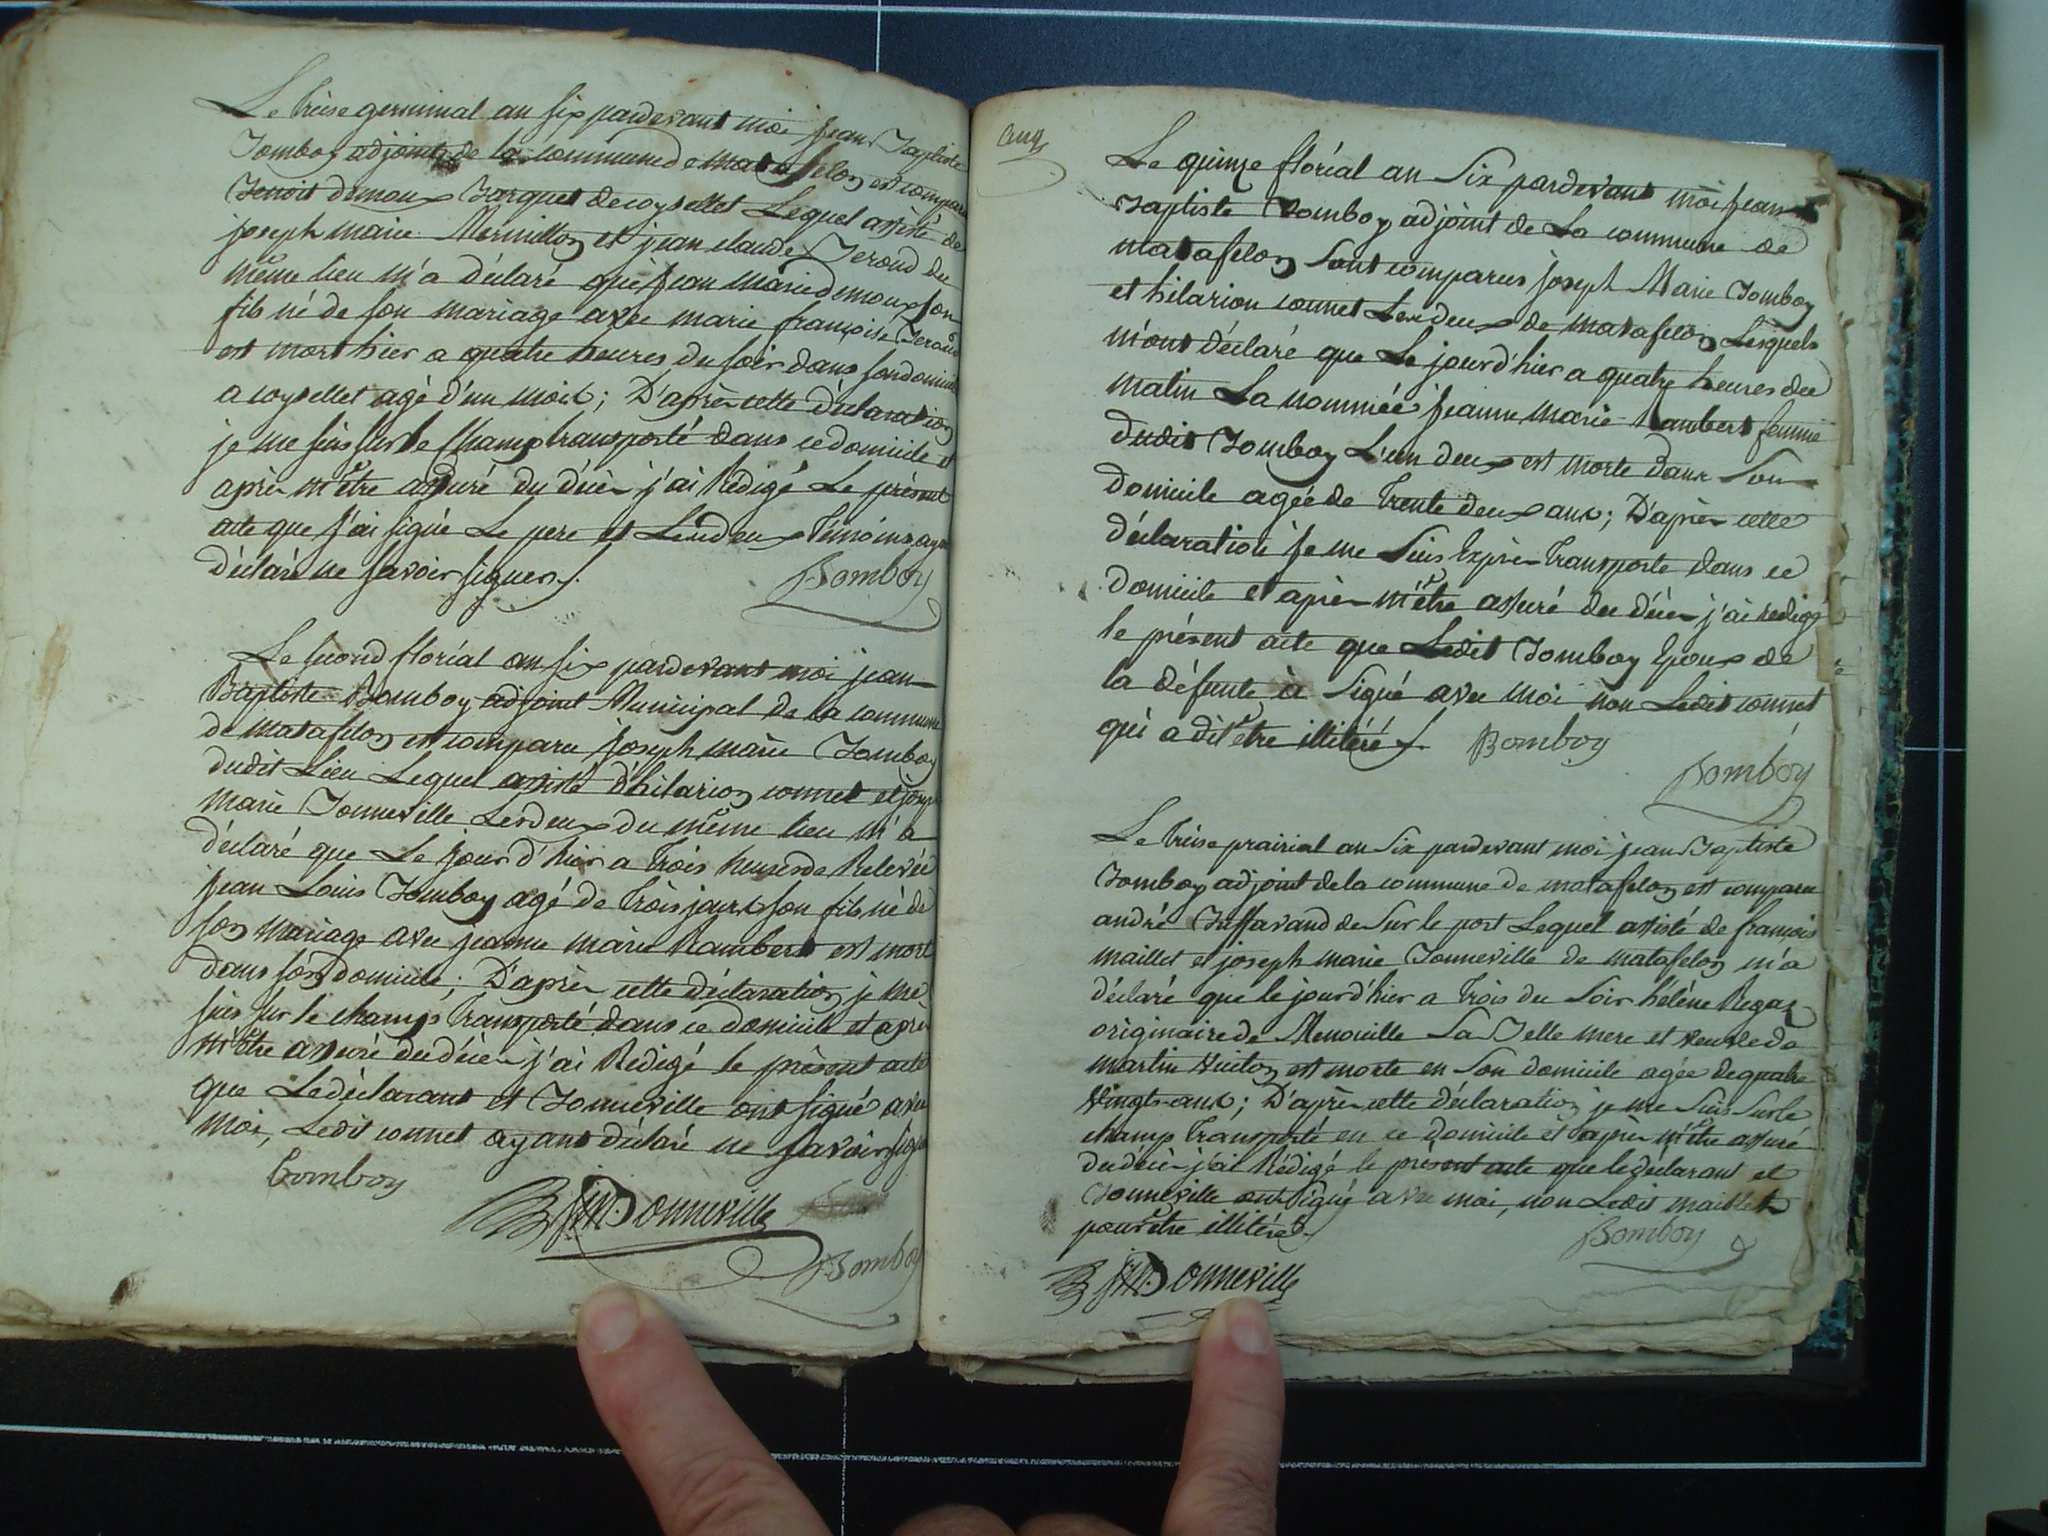 Le treise germinal an six pardevant moi jean Baptiste
Bomboy adjoint de la commune de matafelon est comparu
Benoit dmoux Barquet de coysellet Lequel assisté de
joseph marie Mermillon et jean claude Beroud du
même lieu m'a déclaré que jean marie dmoux son
fils né de son mariage avec marie françoise Beroud
est mort hier a quatre heures du soir dans son domicile
a coysellet agé d'un mois; D'après cette déclaration
je me suis sur le champ transporté dans ce domicile et
après m'être assuré du décès j'ai Rédigé Le présent
acte que j'ai signé Le pere et Lesdeux témoins ayant
déclaré ne savoir signer /.
Bomboy
Le second floréal an six pardevant moi jean
Baptiste Bomboy adjoint Municipal de la commune
de matafelon est comparu joseph marie Bomboy
dudit Lieu Lequel assisté d'hilarion connet et joseph
marie Bonneville Lesdeux du même lieu m'a
déclaré que Le jour d'hier a trois heures de Relevée
jean Louis Bomboy agé de trois jours son fils né de
son mariage avec jeanne marie Rambert est mort
dans son domicile; D'après cette déclaration je me
suis sur le champs transporté dans ce domicile et après
m'être assuré du décès j'ai Rédigé le présent acte
que Le déclarant et Bonneville ont signé avec
moi, Ledit connet ayant déclaré ne savoir signer
bomboy
JM Bonneville
Bomboy
Le quinze floréal an Six pardevant moi jean
Baptiste Bomboy adjoint de La commune de
matafelon Sont comparus joseph Marie Bomboy
et hilarion connet Lesdeux de matafelon Lesquels
m'ont déclaré que Le jour d'hier a quatre heures du
matin La nommée jeanne marie Rambert femme
dudit Bomboy L'un deux est morte dans Son
domicile agée de trente deux ans; D'après cette
déclaration je me Suis Exprès transporté dans ce
domicile et après m'être assuré du décès j'ai redigé
le présent acte que Ledit Bomboy Epoux de
la défunte à Signé avec moi non Ledit connet
qui a dit être illitéré /. Bomboy
Bomboy
Le treise prairial an Six pardevant moi jean Baptiste
Bomboy adjoint de la commune de matafelon est comparu
andré Buffavand de Sur le port Lequel assisté de françois
maillet et joseph marie Bonneville de matafelon m'a
déclaré que le jour d'hier a trois du Soir hélène Regaz
originaire de Menouille La Belle mere et veuve de
martin est morte en Son domicile agée de quatre
vingts ans; D'après cette déclaration je me Suis Sur le
champ transporté en ce domicile et après m'être assuré
du décès j'ai Rédigé le présent acte que le déclarant et
Bonneville ont signé avec moi, non Ledit maillet
pour être illitéré /.
Bomboy
JM Bonneville